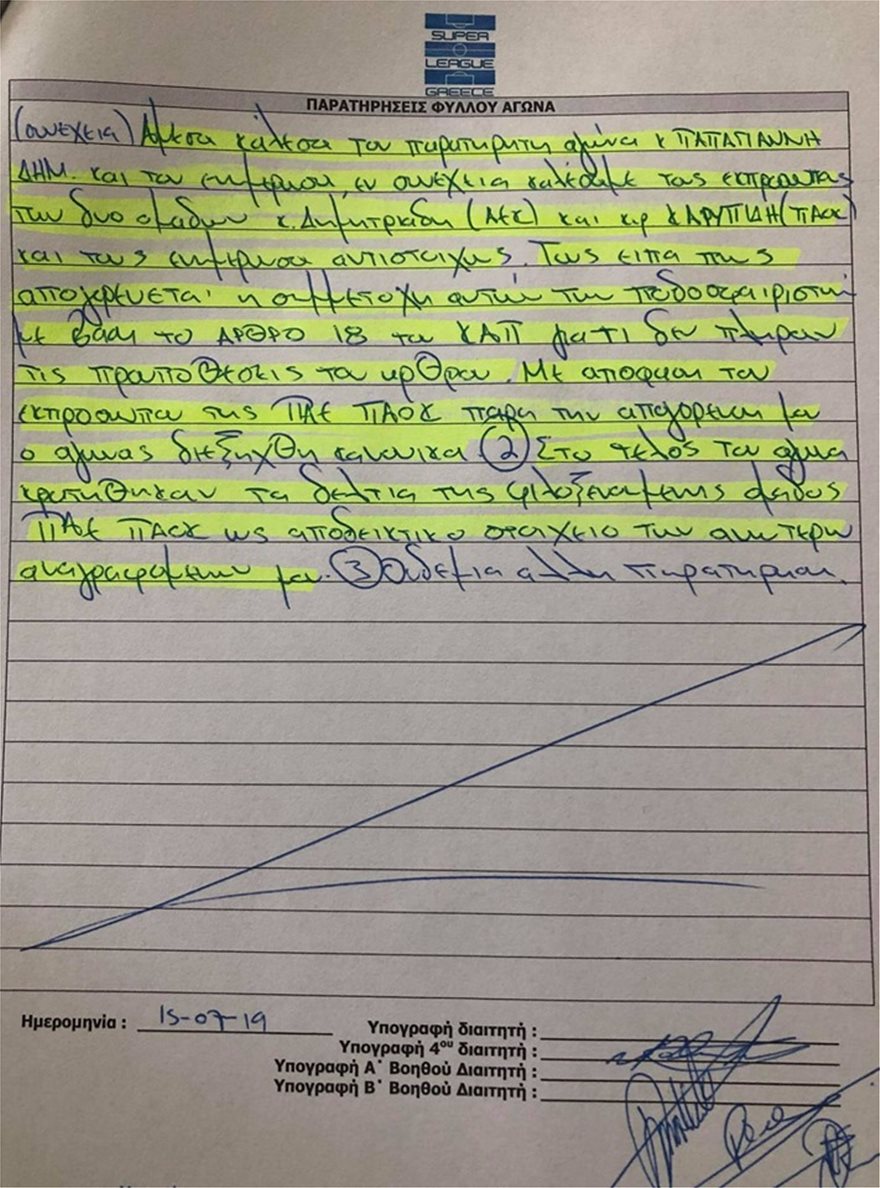 SUPER
LEAGUE
GREECE
ΠΑΡΑΤΗΡΗΣΕΙΣ ΦΥΛΛΟΥ ΑΓΩΝΑ
(συνεχεια) Αμεσα καλεσα τον παρατηρητη αγώνα κ ΠΑΠΑΓΙΑΝΝΗ
ΔΗΜ. και τον ενημερωσα, εν συνεχεια καλέσαμε τους εκπροσωπους
των δυο ομαδων κ. Δημητριαδη (ΑΕΚ) και κο ΚΑΡΥΠΙΔΗ (ΠΑΟΚ)
και τους ενημερωσα αντιστοιχως. Τους ειπα πως
απαγορευεται η συμμετοχη αυτών των ποδοσφαιριστων
με βαση το ΑΡΘΡΟ 18 του ΚΑΠ γιατι δεν πληρουν
τις προυποθεσεις του αρθρου. Με αποφαση του
εκπροσωπου της ΠΑΕ ΠΑΟΚ παρα την απαγορευση μου
ο αγωνας διεξηχθη κανονικα (2) Στο τελος του αγωνα
κρατηθηκαν τα δελτια της φιλοξενουμενης ομαδος
ΠΑΕ ΠΑΟΚ ως αποδεικτικο στοιχειο των ανωτερω
αναγραφομενων μου. (3) Ουδεμια αλλη παρατηρηση.
Ημερομηνία : 15-07-19
Υπογραφή διαιτητή :
Υπογραφή 4ου διαιτητή :
Υπογραφή Α΄ Βοηθού Διαιτητή :
Υπογραφή Β΄ Βοηθού Διαιτητή :